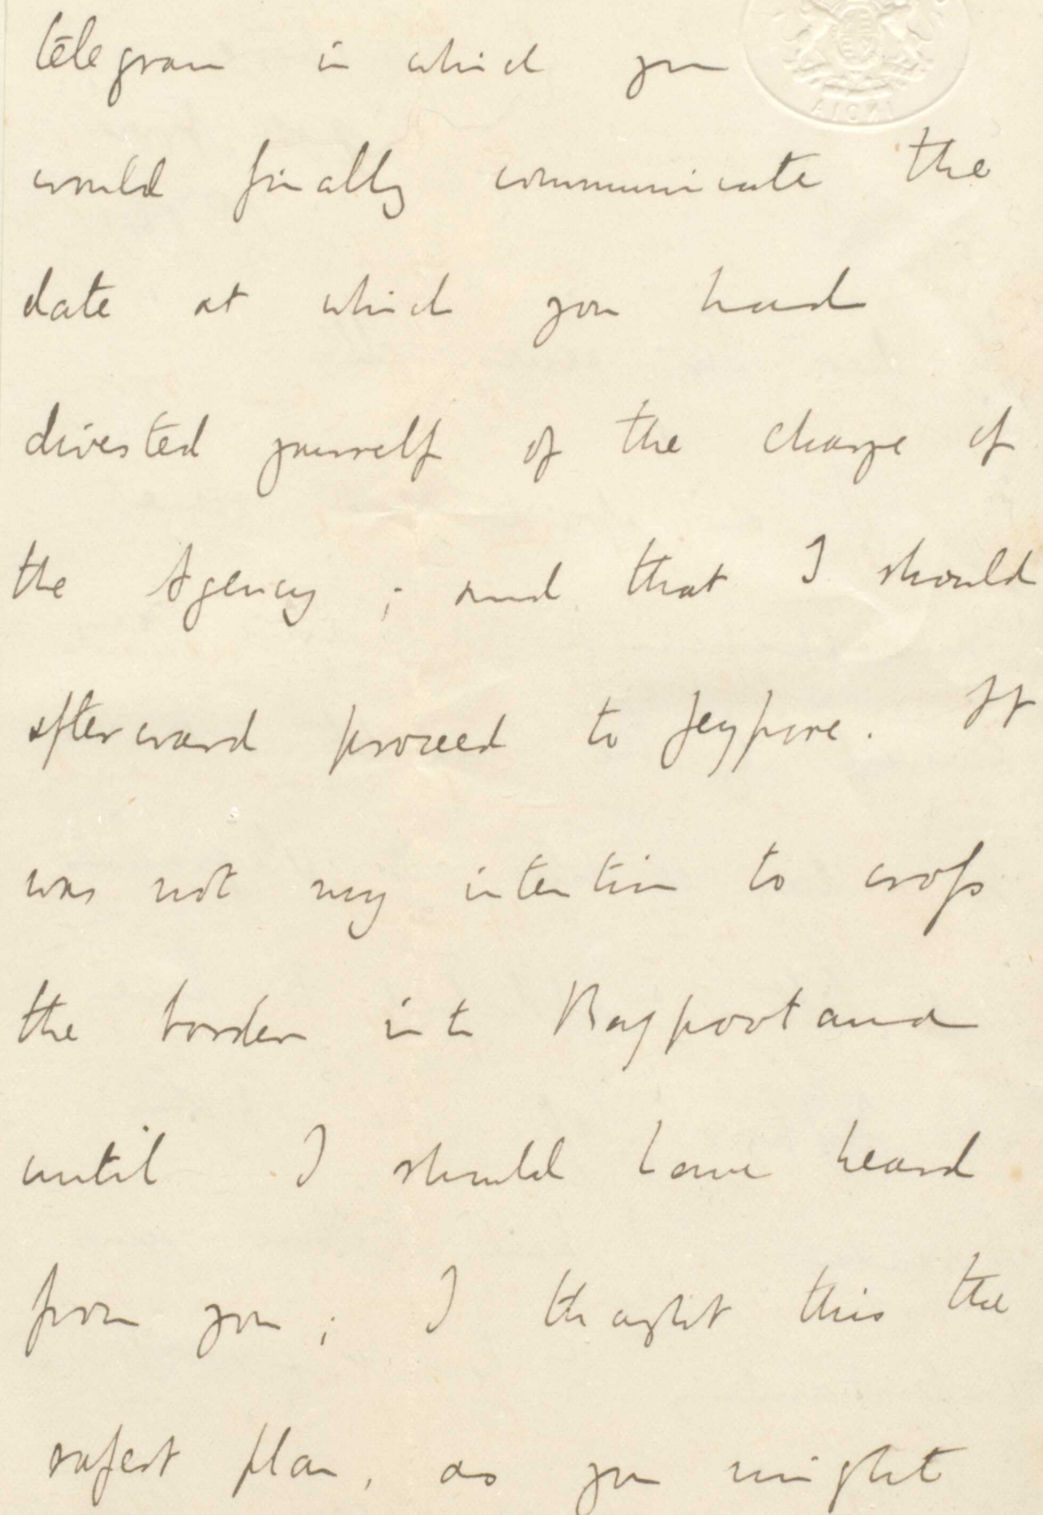 telegram in which you
would finally communicate the
date at which you had
divested yourself of the charge of
the Agency ; and that I should
afterward proceed to Jeypore. It
was not my intention to cross
the border into Rajpootana
until I should have heard
from you ; I thought this the
safest plan, as you might
INDIA